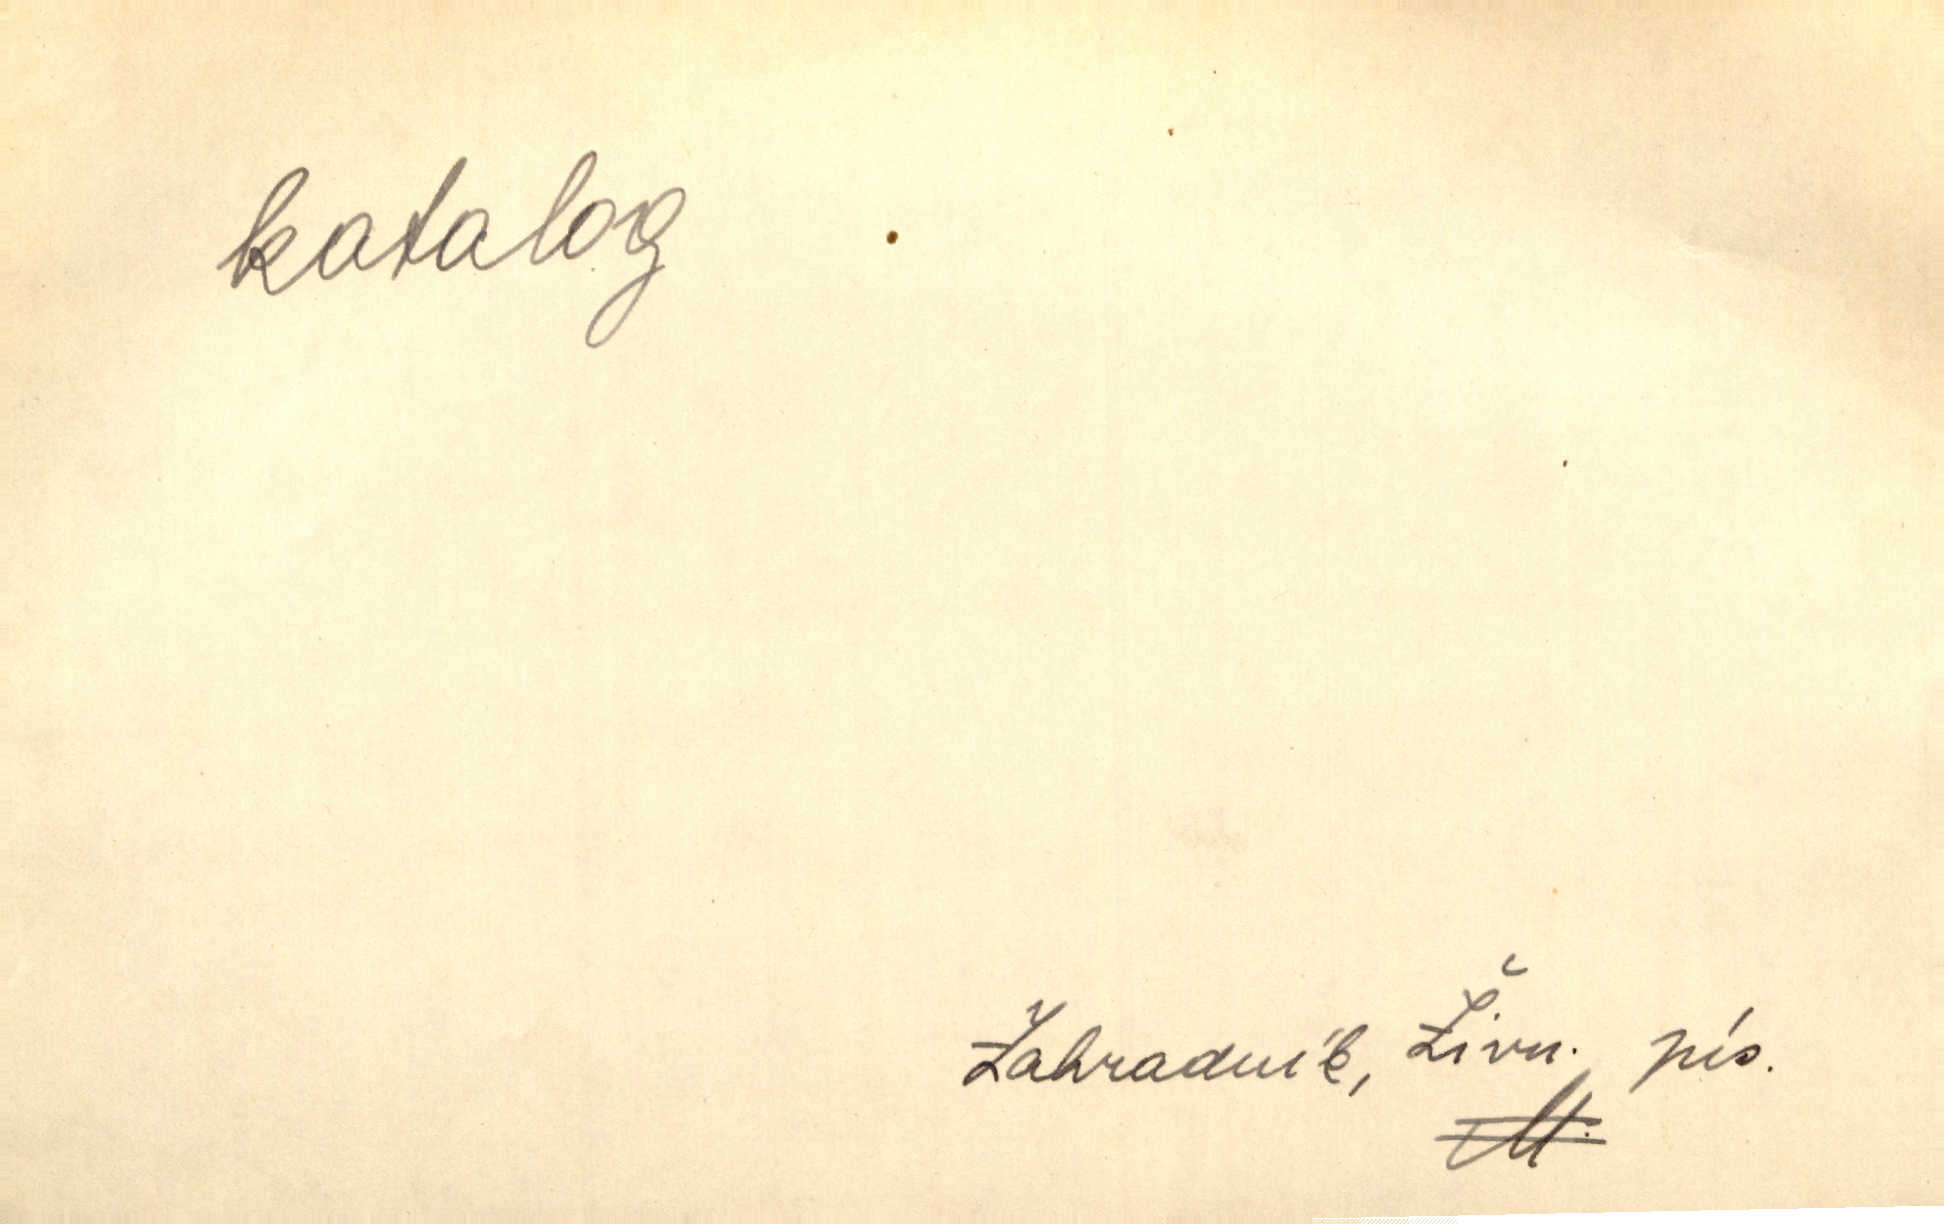 katalog
Zahradník, Živn. pís.